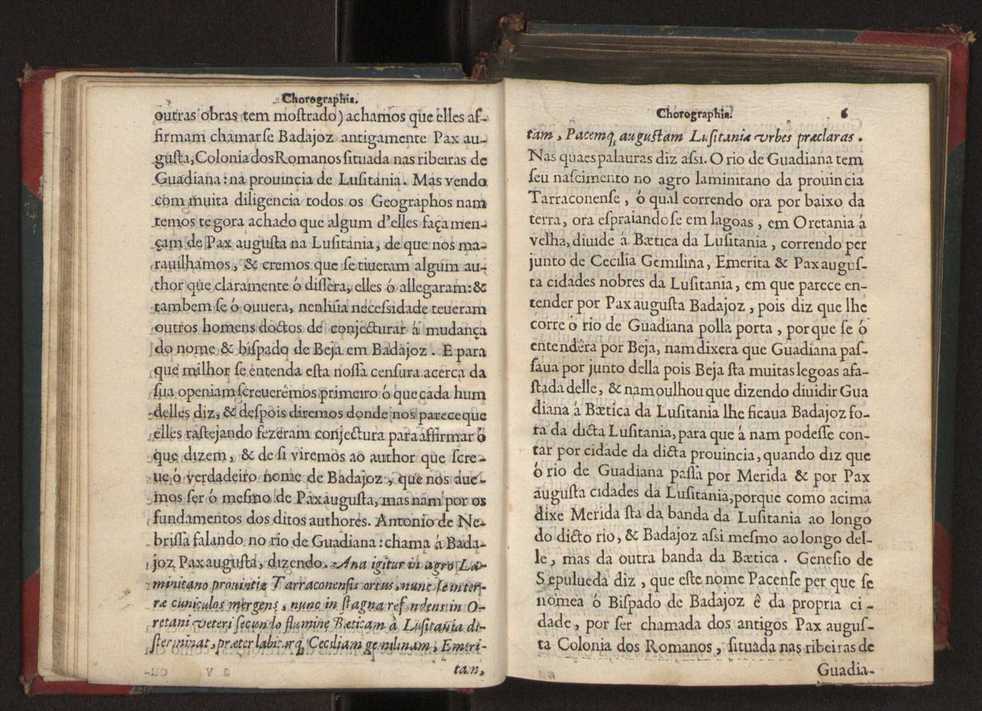 Chorographia.
outras obras tem mostrado) achamos que elles af-
firmam chamarse Badajoz antigamente Pax au-
gusta, Colonia dos Romanos situada nas ribeiras de
Guadiana: na prouincia de Lusitania. Mas vendo
com muita diligencia todos os Geographos nam
temos tegora achado que algum d'elles faça men-
çam de Pax augusta na Lusitania, de que nos ma-
rauilhamos, & cremos que se tiueram algum au-
thor que claramente ó dissera, elles ó allegaram: &
tambem se ó ouuera, nenhũa necessidade teueram
outros homens doctos de conjecturar á mudança
do nome & bispado de Beja em Badajoz. E para
que milhor se entenda esta nossa censura acerca da
sua openiam screueremos primeiro ó que cada hum
delles diz, & despois diremos donde nos parece que
elles rastejando fezeram conjectura para affirmar ó
que dizem, & de si viremos ao author que scre-
ue ó verdadeiro nome de Badajoz, que nos aue-
mos ser ó mesmo de Pax augusta, mas nam por os
fundamentos dos ditos authores. Antonio de Ne-
brissa falando no rio de Guadiana: chama á Bada-
joz Pax augusta, dizendo. Ana igitur in agro La-
minitano prouintiæ Tarraconensis ortus, nunc se inter-
ræ cuniculos mergens, nunc in stagna ref ndens in O-
retani veteri secundo flumine Bæticam à Lusitania di-
sterminat, præter labiturq, Ceciliam gemilinam, Emeri-
tam,
Chorographia. 6
tam, Pacemq, augustam Lusitaniæ vrbes præclaras.
Nas quaes palauras diz assi. O rio de Guadiana tem
seu nascimento no agro laminitano da prouincia
Tarraconense, ó qual correndo ora por baixo da
terra, ora espraiandose em lagoas, em Oretania á
velha, diuide á Bætica da Lusitania, correndo per
junto de Cecilia Gemilina, Emerita & Pax augus-
ta cidades nobres da Lusitania, em que parece en-
tender por Pax augusta Badajoz, pois diz que lhe
corre ó rio de Guadiana polla porta, porque se ó
entendêra por Beja, nam dixera que Guadiana pas-
saua por junto della pois Beja sta muitas legoas afa-
stada delle, & nam oulhou que dizendo diuidir Gua
diana á Bætica da Lusitania lhe ficaua Badajoz fo-
ra da dicta Lusitania, para que á nam podesse con-
tar por cidade da dicta prouincia, quando diz que
ó rio de Guadiana passa por Merida & por Pax
augusta cidades da Lusitania, porque como acima
dixe Merida sta da banda da Lusitania ao longo
do dicto rio, & Badajoz assi mesmo ao longo del-
le, mas da outra banda da Bætica. Genesio de
Sepulueda diz, que este nome Pacense per que se
nomea ó Bispado de Badajoz ê da propria ci-
dade, por ser chamada dos antigos Pax augus-
ta Colonia dos Romanos, situada nas ribeiras de
Guadia-